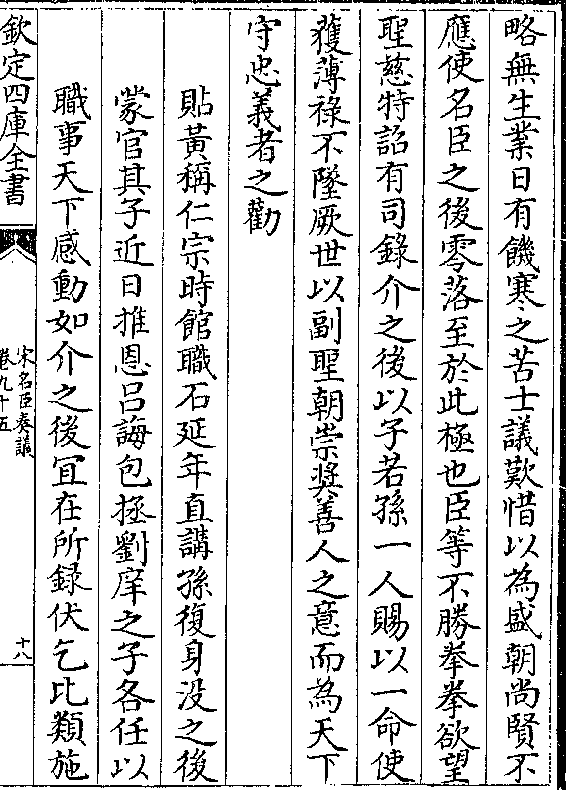 略無生業日有饑寒之苦士議歎惜以為盛朝尚賢不
應使名臣之後零落至於此極也臣等不勝拳拳欲望
聖慈特詔有司錄介之後以子若孫一人賜以一命使
獲薄祿不墜厥世以副聖朝崇奬善人之意而為天下
守忠義者之勸
貼黃稱仁宗時館職石延年直講孫復身没之後
蒙官其子近日推恩吕誨包拯劉庠之子各任以
職事天下感動如介之後宜在所録伏乞比類施
欽定四庫全書
宋名臣奏議
卷九十五
十八